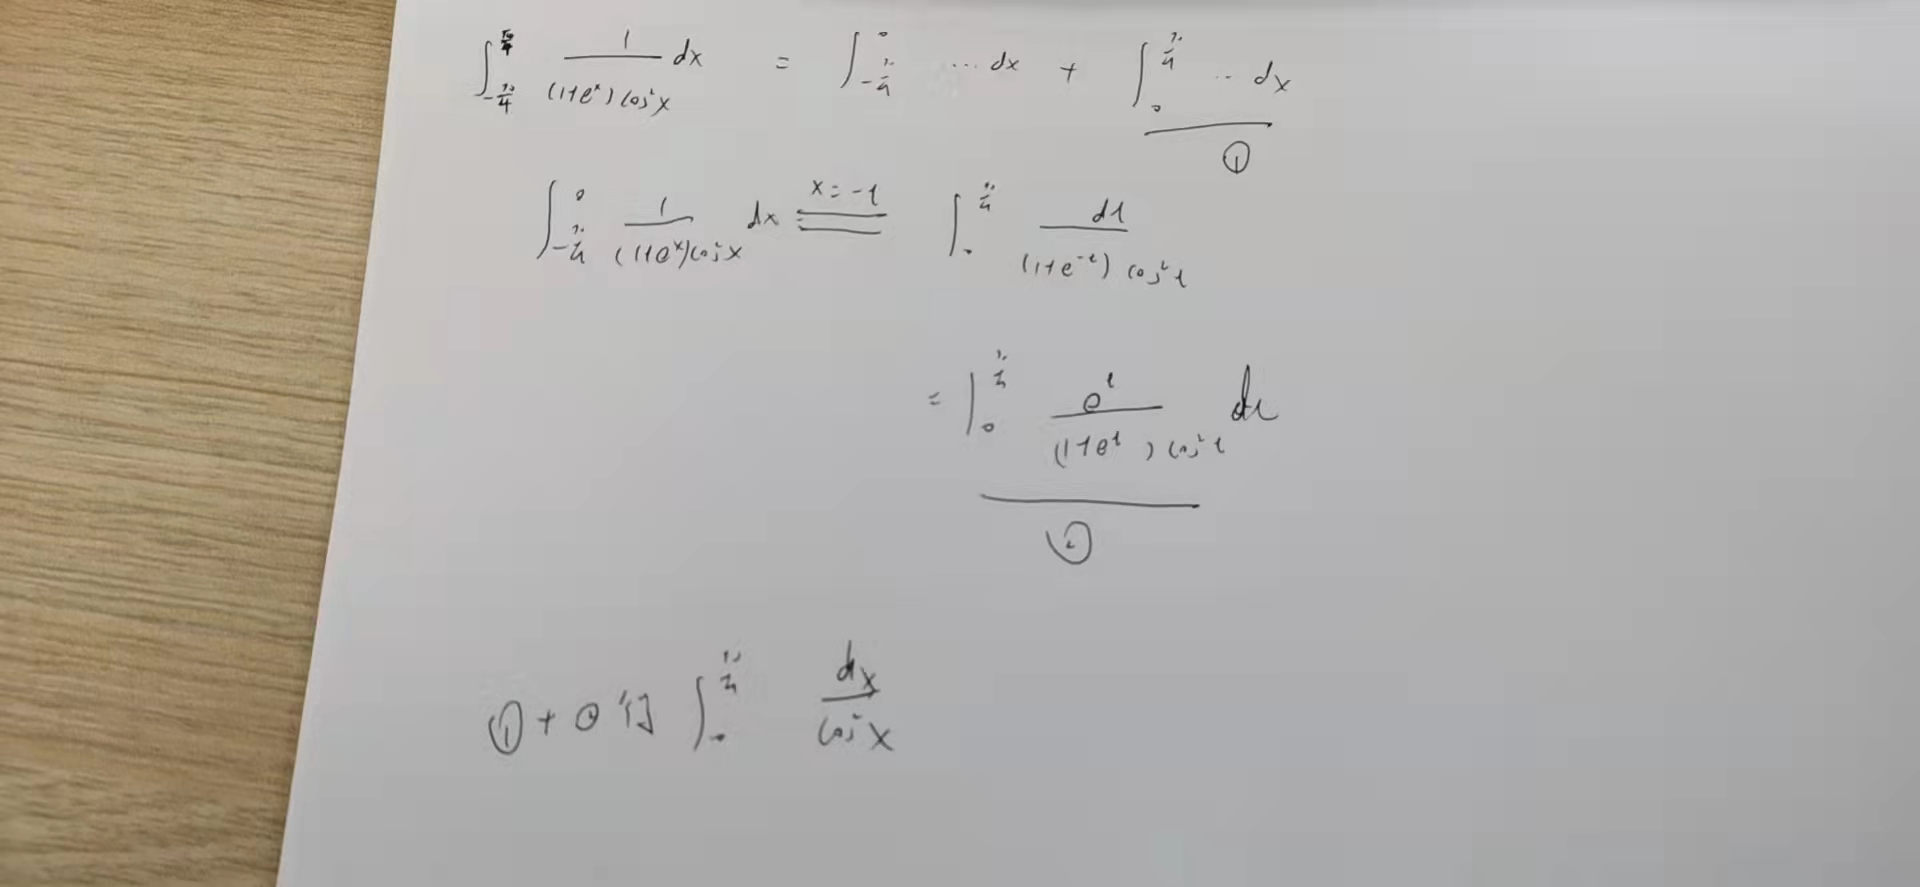 ∫_{-π/4}^{π/4} 1/((1+e^x)cos²x) dx = ∫_{-π/4}^{0} ... dx + ∫_{0}^{π/4} ... dx
①
∫_{-π/4}^{0} 1/((1+e^x)cos²x) dx =(x=-t)= ∫_{0}^{π/4} dt/((1+e^{-t})cos²t)
= ∫_{0}^{π/4} e^t/((1+e^t)cos²t) dt
②
①+②得 ∫_{0}^{π/4} dx/cos²x